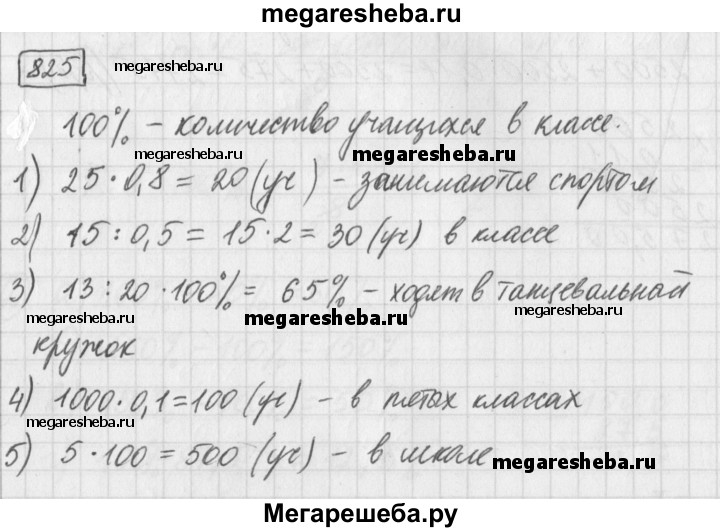 megaresheba.ru
825 megaresheba.ru megaresheba.ru
100% – количество учащихся в классе.
megaresheba.ru megaresheba.ru
1) 25 · 0,8 = 20 (уч) – занимаются спортом
megaresheba.ru
2) 15 : 0,5 = 15 · 2 = 30 (уч) в классе
3) 13 : 20 · 100% = 65% – ходят в танцевальный
megaresheba.ru megaresheba.ru megaresheba.ru
кружок
4) 1000 · 0,1 = 100 (уч) – в пятых классах
megaresheba.ru
5) 5 · 100 = 500 (уч) – в школе
megaresheba.ru
Мегарешеба.ру